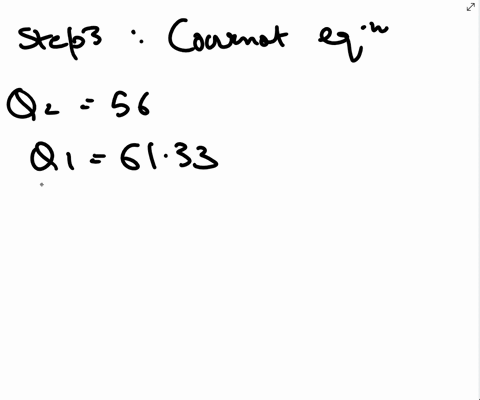 Step3 : Cournot eqin
Q2 = 56
Q1 = 61.33